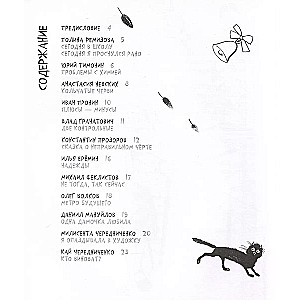 СОДЕРЖАНИЕ
ПРЕДИСЛОВИЕ 4
ПОЛИНА РЕМИЗОВА 5
СЕГОДНЯ В ШКОЛУ
СЕГОДНЯ Я ПРОСНУЛСЯ РАНО
ЮРИЙ ТИМОНИН 6
ПРОБЛЕМЫ С ХИМИЕЙ
АНАСТАСИЯ ЧЕВСКИХ 8
КОЛЬЧАТЫЕ ЧЕРВИ
ИВАН ПРОНИН 10
ПЛЮСЫ – МИНУСЫ
ВЛАД ГРАЧАТОВИЧ 11
ДВЕ КОНТРОЛЬНЫЕ
КОНСТАНТИН ПРОЗОРОВ 12
СКАЗКА О НЕПРАВИЛЬНОМ ЧЁРТЕ
ИЛЬЯ ЕРЁМИН 16
НАДЕЖДЫ
МИХАИЛ ФЕКЛИСТОВ 17
НЕ ТОГДА, ТАК СЕЙЧАС
ОЛЕГ ВОЛКОВ 18
МЕТРО БУДУЩЕГО
ДАНИИЛ МАНУЙЛОВ 19
ОДНА ДАМОЧКА ЛЮБИЛА
МИЛИСЕНТА ЧЕРЕДНИЧЕНКО 20
Я ОПАЗДЫВАЛА В ХУДОЖКУ
КАЙ ЧЕРЕДНИЧЕНКО 24
КТО ВИНОВАТ?